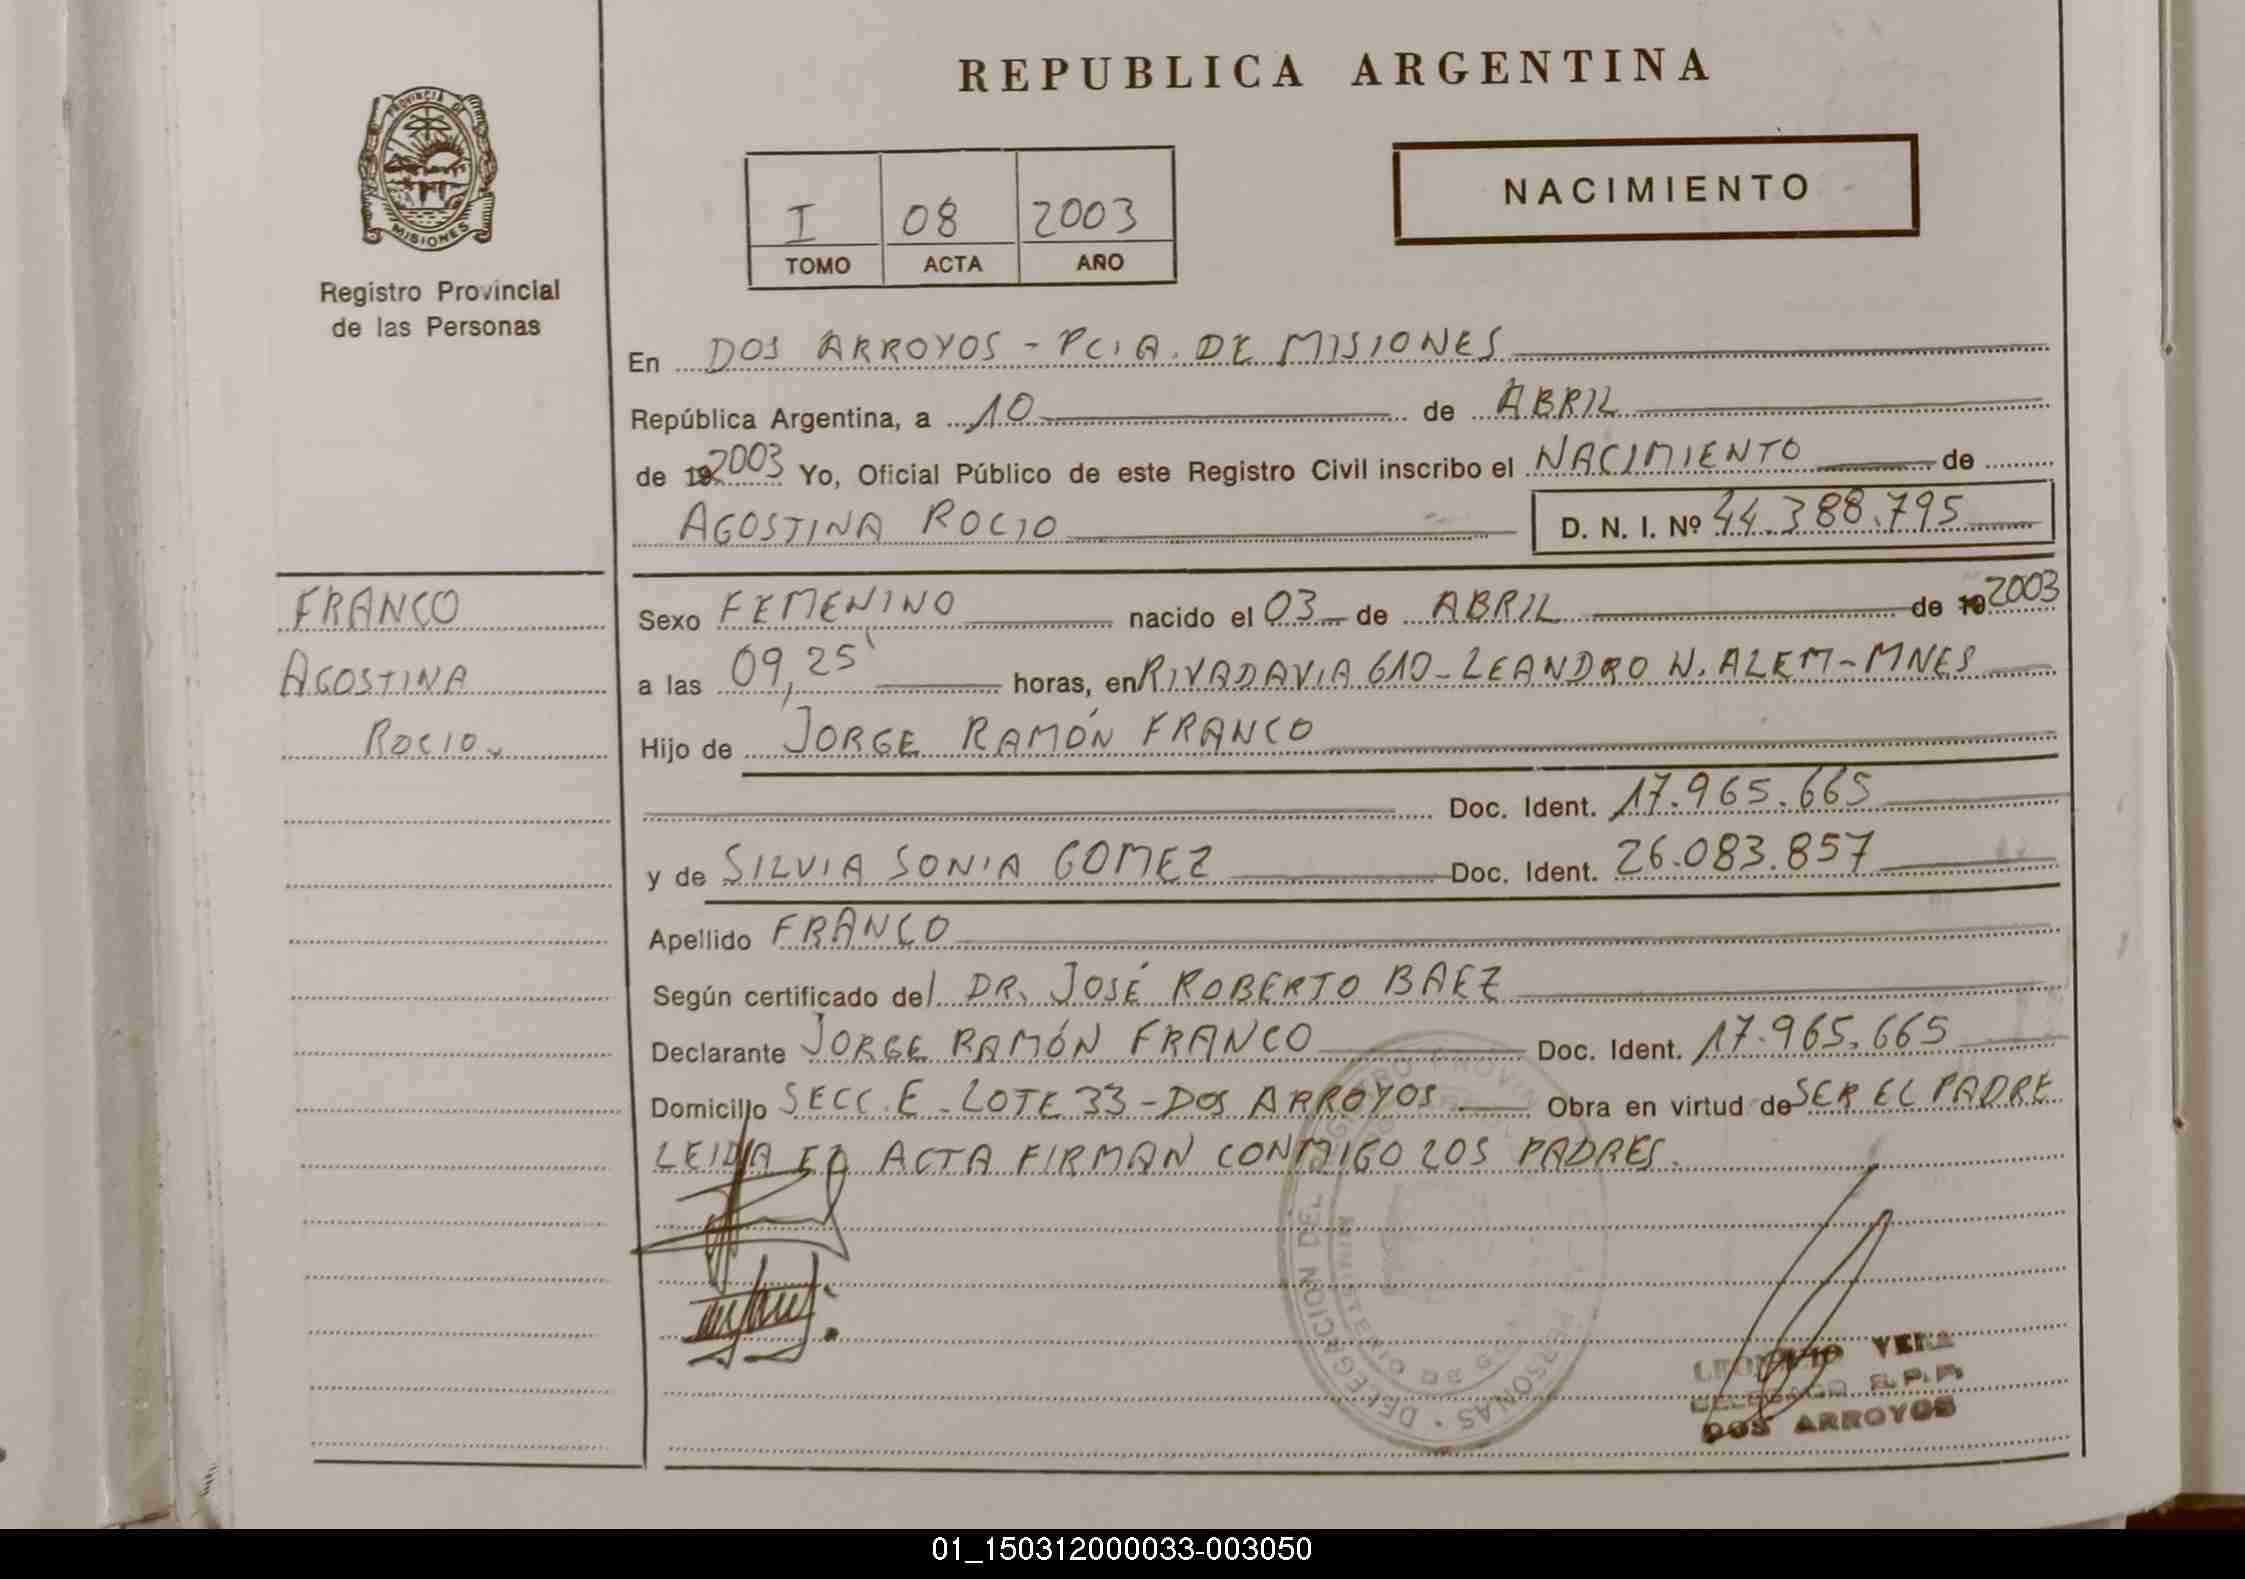 REPUBLICA ARGENTINA
PROVINCIA DE
MISIONES
Registro Provincial
de las Personas
NACIMIENTO
I 08 2003
TOMO ACTA AÑO
En DOS ARROYOS - PCIA. DE MISIONES
República Argentina, a 10 de ABRIL
de 19 2003 Yo, Oficial Público de este Registro Civil inscribo el NACIMIENTO de
AGOSTINA ROCIO D. N. I. Nº 44.388.795
FRANCO
AGOSTINA
ROCIO
Sexo FEMENINO nacido el 03 de ABRIL de 19 2003
a las 09,25' horas, en RIVADAVIA 610 - LEANDRO N. ALEM - MNES
Hijo de JORGE RAMÓN FRANCO
Doc. Ident. 17.965.665
y de SILVIA SONIA GOMEZ Doc. Ident. 26.083.857
Apellido FRANCO
Según certificado del DR. JOSÉ ROBERTO BAEZ
Declarante JORGE RAMÓN FRANCO Doc. Ident. 17.965.665
Domicilio SECC. E - LOTE 33 - DOS ARROYOS Obra en virtud de SER EL PADRE
LEIDA EL ACTA FIRMAN CONMIGO LOS PADRES.
DELEGACION DEL REGISTRO PROVIN PERSONAS
MINISTERIO DE GO
VERA
R.P.P.
DOS ARROYOS
01_150312000033-003050